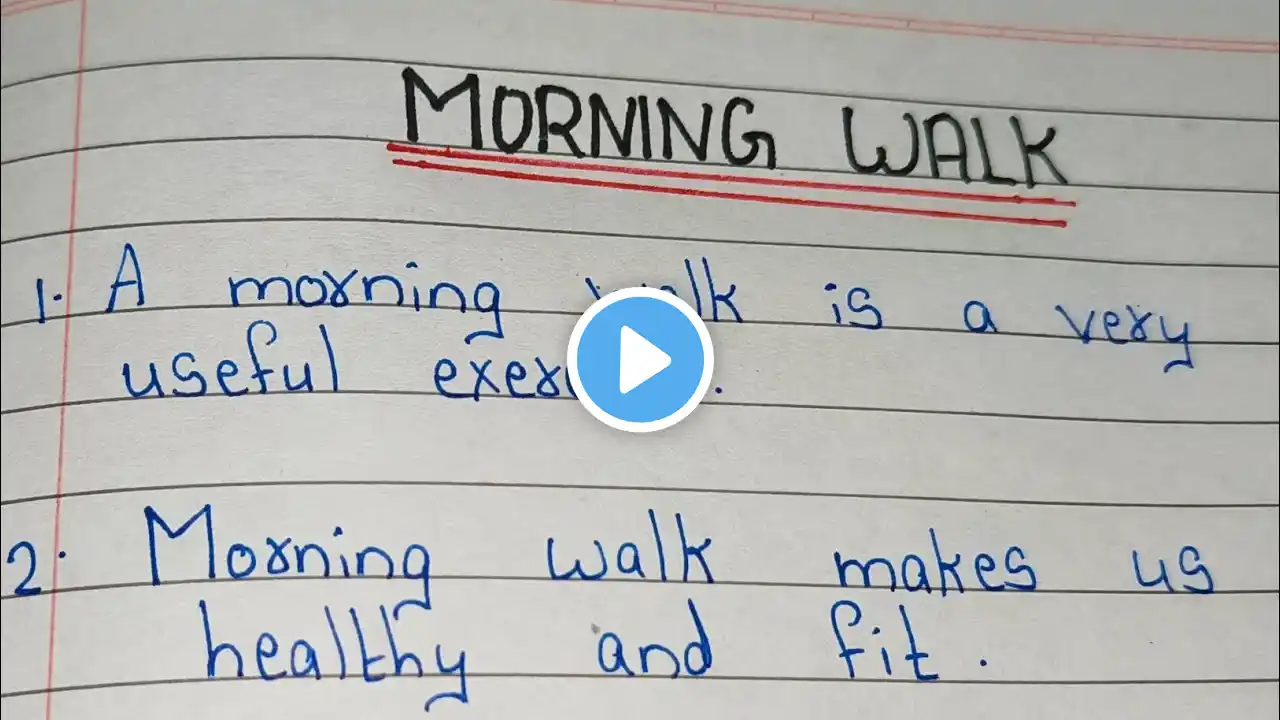 MORNING WALK
1. A morning walk is a very
useful .
2. Morning walk makes us
healthy and fit.